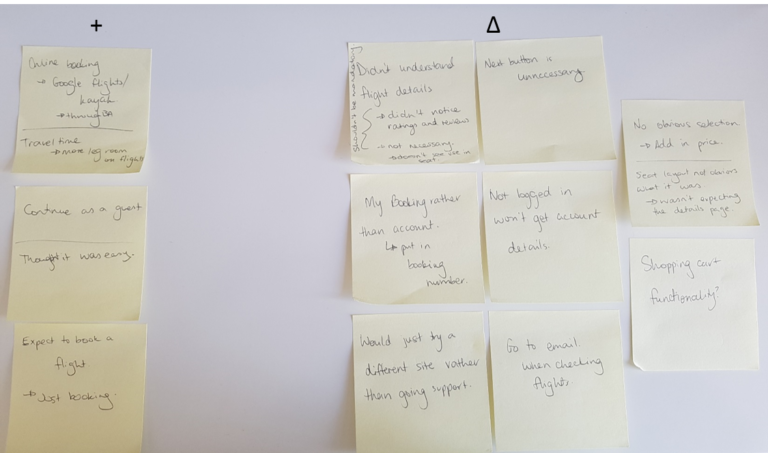 +
Online booking
→ Google flights/
kayak
→ through BA
Travel time
→ more leg room
on flights
Continue as a guest
Thought it was easy.
Expect to book a
flight
→ Just booking.
Δ
Shouldn't be mandatory
Didn't understand
flight details
→ didn't notice
ratings and reviews
→ not necessary.
→ doesn't you use in
Next button is
unnccessary.
My Booking rather
than account.
↳ put in
booking
number.
Not logged in
won't get account
details.
Would just try a
different site rather
than going support.
Go to email
when checking
flights.
No obvious selection
→ Add in price.
layout not obvious
what it was
→ wasn't expecting
the details page
Shopping cart
functionality?